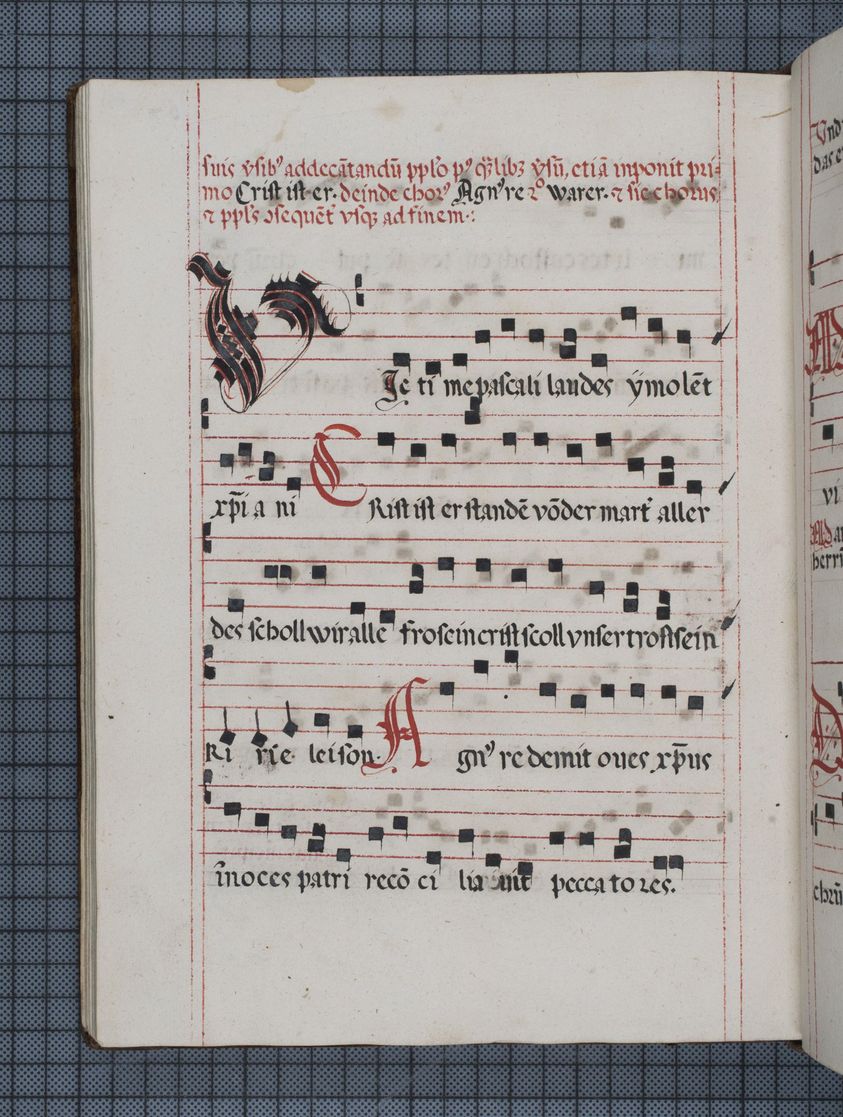 suis v̄sibꝰ ad decātandū ppl̄o pꝰ q̄libꝫ v̄sū, etiā inponit pri-
mo Crist ist er. deinde chorꝰ Agnꝰ re 2º warer. ⁊ sic chorus
⁊ ppl̄s ꝯsequēt᷑ vsqꝫ ad finem.:
VJctime pascali laudes ȳmolēt
xp̄iani CRist ist erstandē vō der mart᷑ aller
des scholl wir alle fro sein crist scoll vnser trost sein
Kirieleison. Agnꝰ redemit oues xp̄us
īnoces patri recōciliauit peccatores.